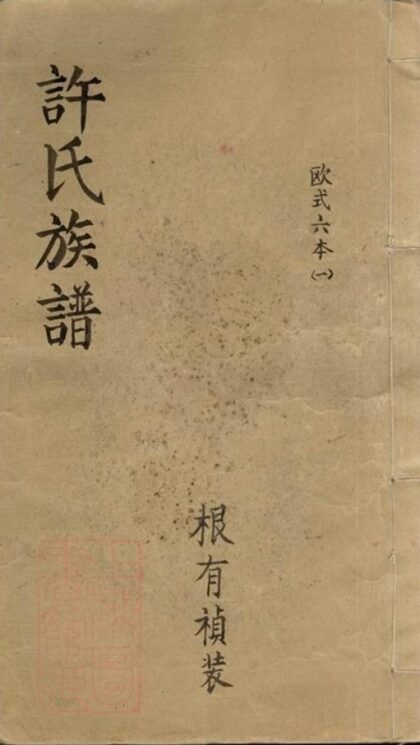 欧式六本(一)
許氏族譜
根有禎装